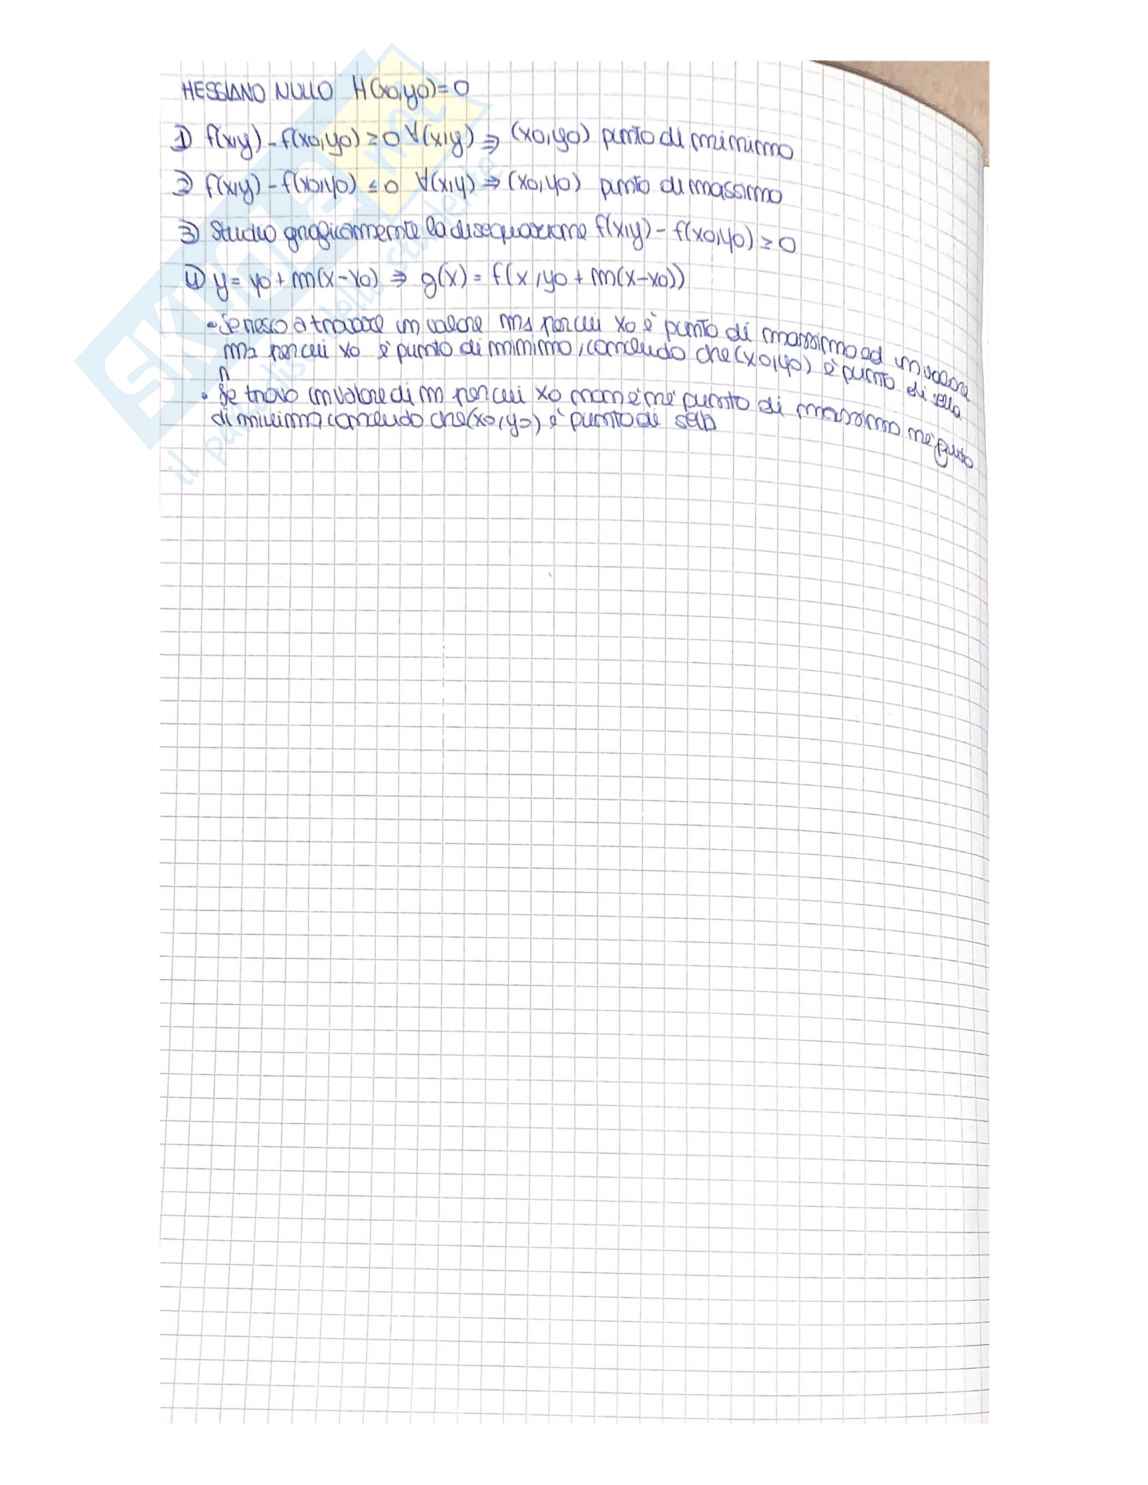 HESSIANO NULLO H(x0,y0)=0
1) f(x,y) - f(x0,y0) ≥ 0 ∀(x,y) ⇒ (x0,y0) punto di minimo
2) f(x,y) - f(x0,y0) ≤ 0 ∀(x,y) ⇒ (x0,y0) punto di massimo
3) Studio graficamente la disequazione f(x,y) - f(x0,y0) ≥ 0
4) y = y0 + m(x-x0) ⇒ g(x) = f(x, y0 + m(x-x0))
• Se riesco a trovare un valore m1 per cui x0 è punto di massimo ed un valore
m2 per cui x0 è punto di minimo, concludo che (x0,y0) è punto di sella
• Se trovo un valore di m per cui x0 non è né punto di massimo né punto
di minimo concludo che (x0,y0) è punto di sella
SKUOLA
.net
il paradiso dello studente